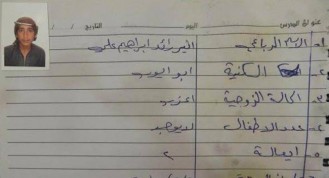 عنوان الدرس اليوم التاريخ / /
١- الاسم الرباعي البرائد ابراهيم علي
٢- الكنية ابو ايوب
٣- الحالة الزوجية اعزب
٤- عدد الاطفال لا يوجد
٥- العالة ٢